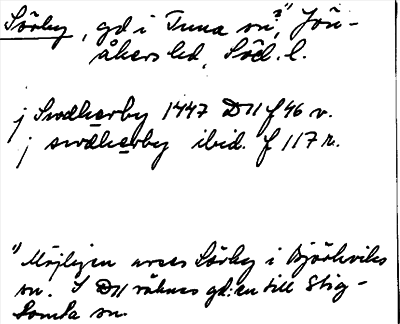 Sörby, gd i Tuna sn,?¹⁾ Jön-
åkers hd, Söd. l.
j Swdherby 1447 D11 f 46 v.
j swdherby ibid. f 117 r.
¹⁾ Möjligen avses Sörby i Björkviks
sn. I D11 räknas gd:en till Stig-
tomta sn.